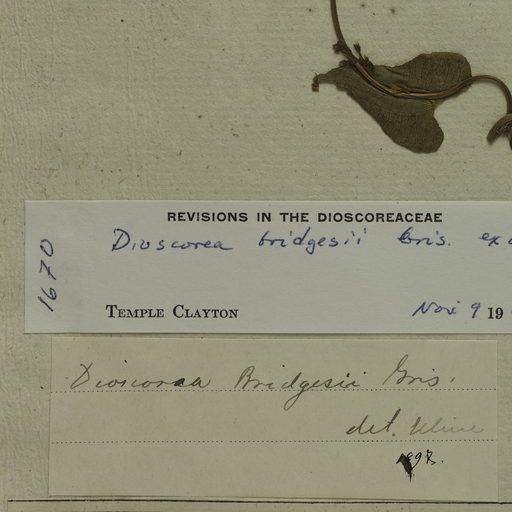 REVISIONS IN THE DIOSCOREACEAE
Dioscorea bridgesii Gris. ex
1670
TEMPLE CLAYTON Nov 9 19
Dioscorea Bridgesii Gris.
det. Uline